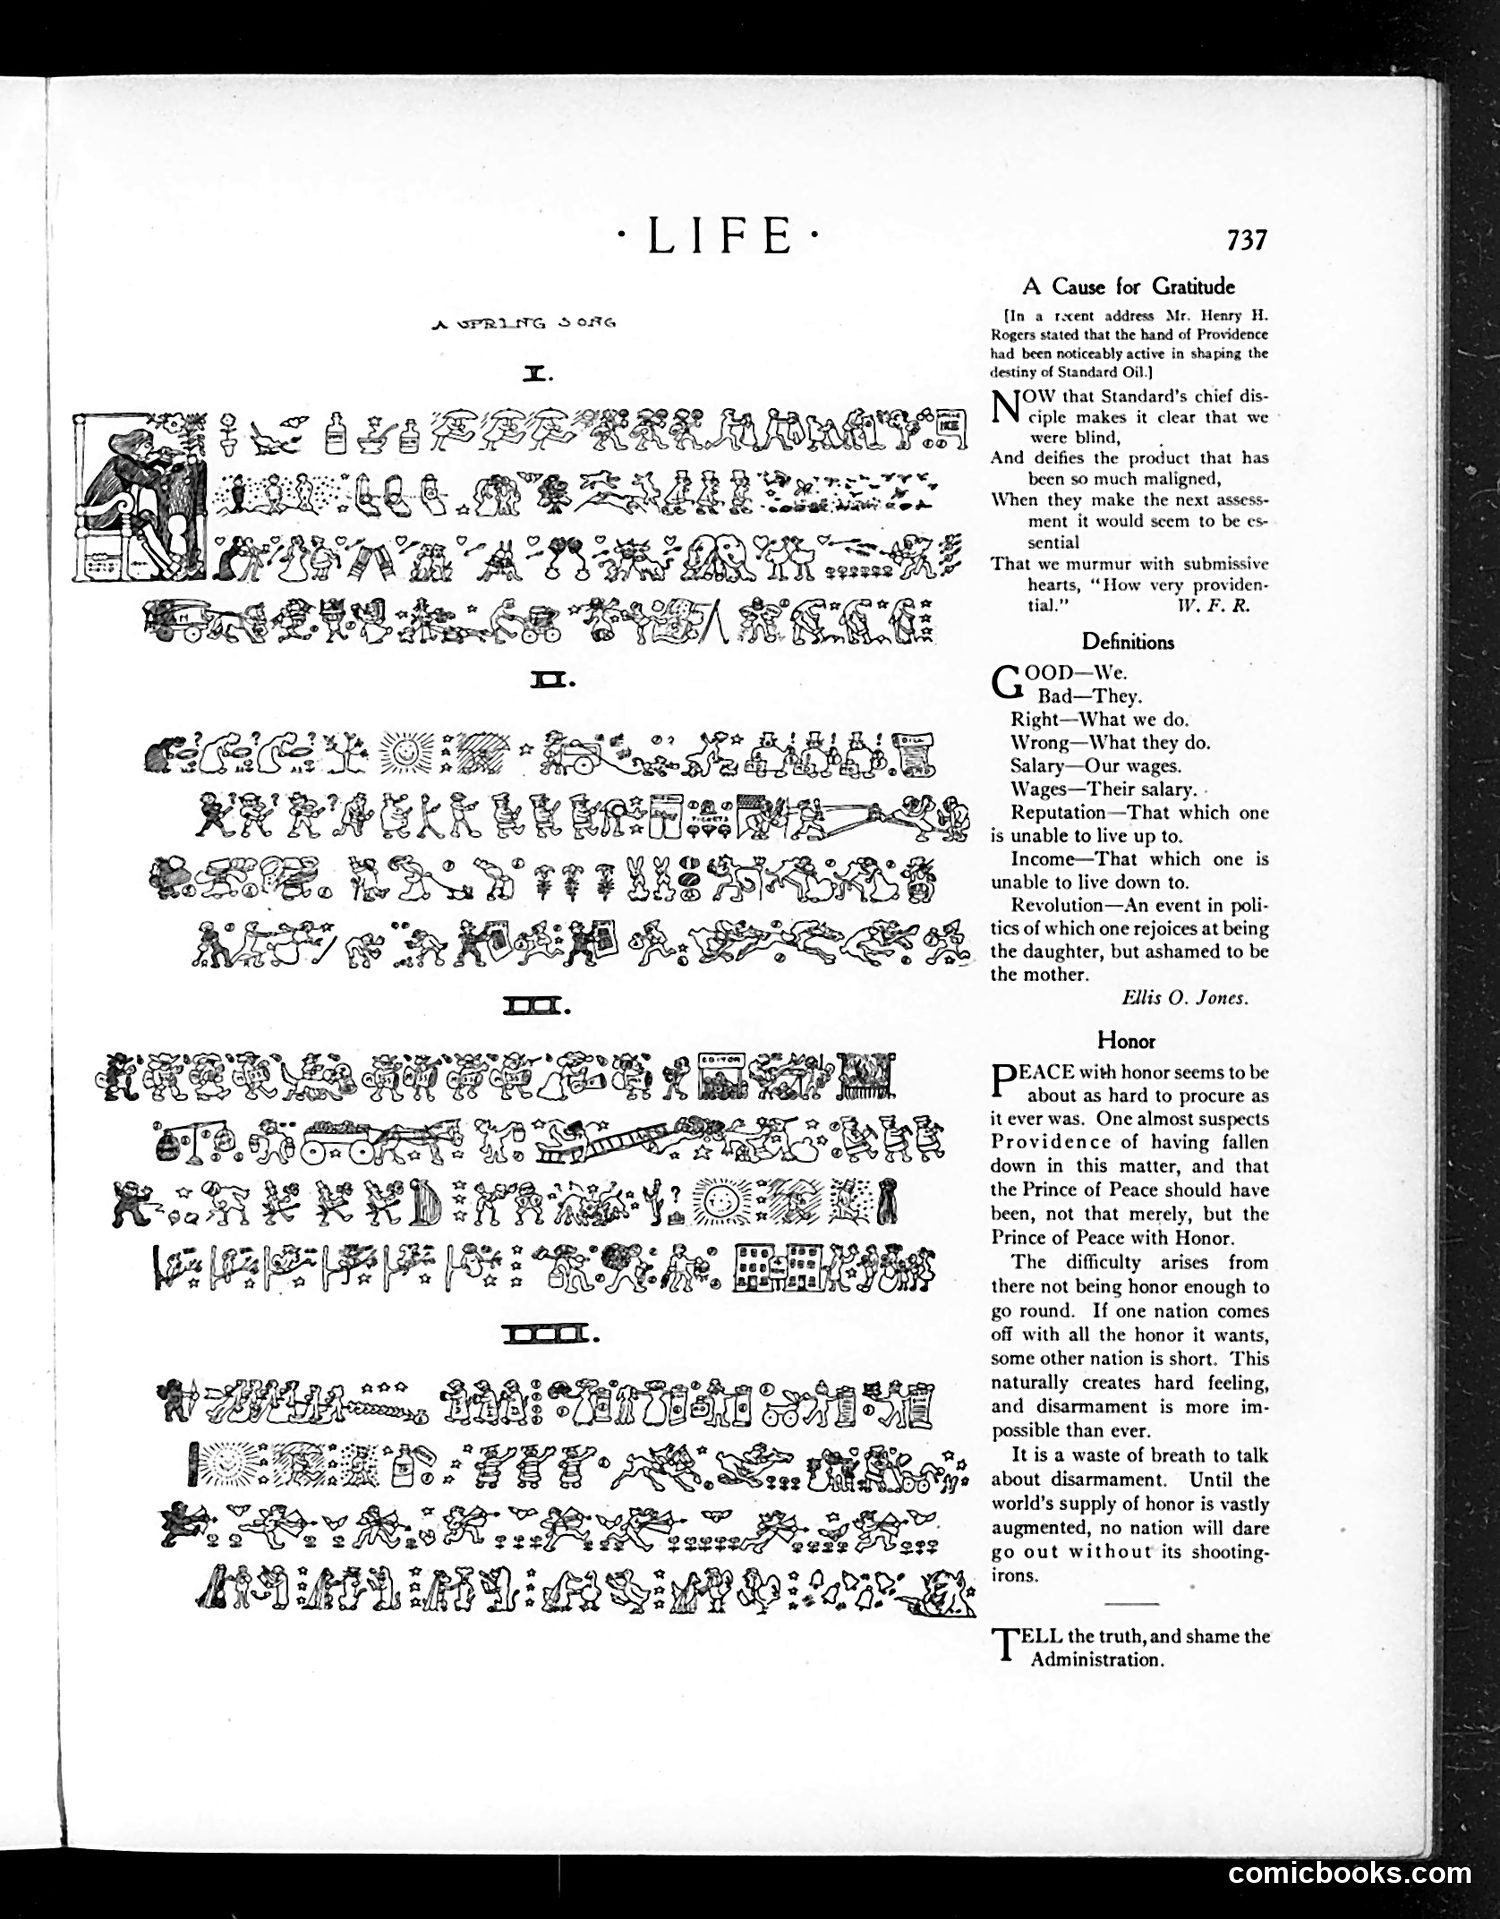 · LIFE ·
737
A SPRING SONG
I.
II.
TICKETS
III.
EDITOR
IIII.
A Cause for Gratitude
[In a recent address Mr. Henry H.
Rogers stated that the hand of Providence
had been noticeably active in shaping the
destiny of Standard Oil.]
NOW that Standard's chief dis-
ciple makes it clear that we
were blind,
And deifies the product that has
been so much maligned,
When they make the next assess-
ment it would seem to be es-
sential
That we murmur with submissive
hearts, "How very providen-
tial." W. F. R.
Definitions
GOOD—We.
Bad—They.
Right—What we do.
Wrong—What they do.
Salary—Our wages.
Wages—Their salary.
Reputation—That which one
is unable to live up to.
Income—That which one is
unable to live down to.
Revolution—An event in poli-
tics of which one rejoices at being
the daughter, but ashamed to be
the mother.
Ellis O. Jones.
Honor
PEACE with honor seems to be
about as hard to procure as
it ever was. One almost suspects
Providence of having fallen
down in this matter, and that
the Prince of Peace should have
been, not that merely, but the
Prince of Peace with Honor.
The difficulty arises from
there not being honor enough to
go round. If one nation comes
off with all the honor it wants,
some other nation is short. This
naturally creates hard feeling,
and disarmament is more im-
possible than ever.
It is a waste of breath to talk
about disarmament. Until the
world's supply of honor is vastly
augmented, no nation will dare
go out without its shooting-
irons.
TELL the truth, and shame the
Administration.
comicbooks.com